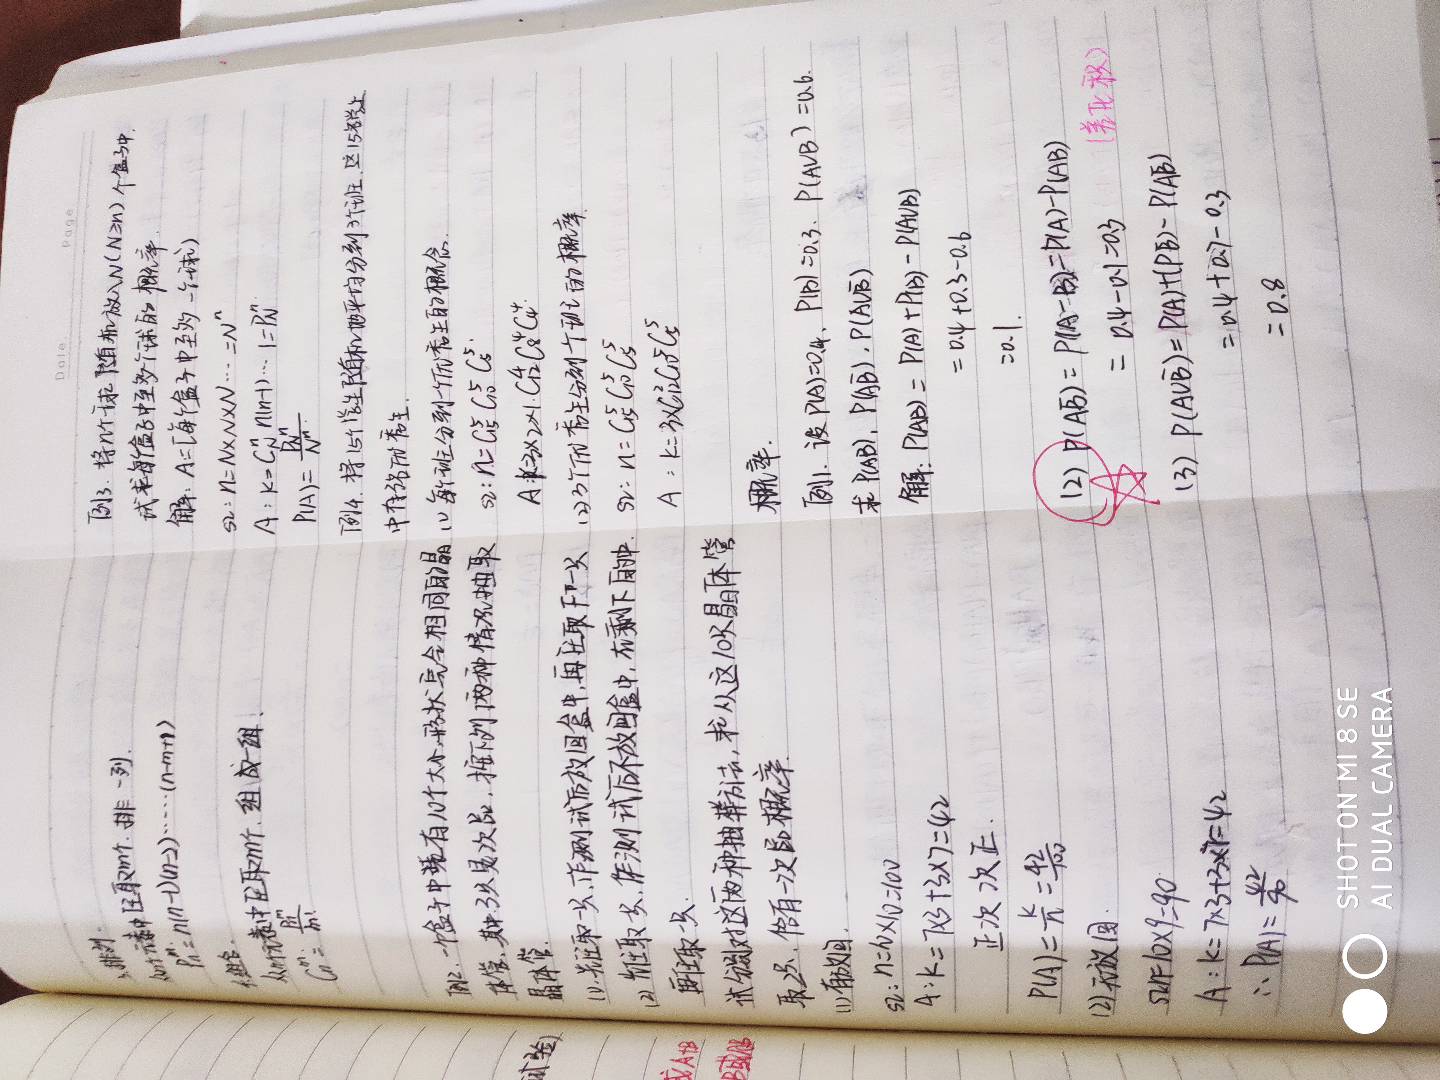 3.排列.
从n个元素中任取m个.排一列.
Pₙᵐ=n(n-1)(n-2)……(n-m+1)
4.组合.
从n个元素中任取m个.组成一组.
Cₙᵐ=Pₙᵐ/m!
例2.一个盒子中装有10个大小,形状完全相同的晶
体管,其中3只是次品,按下列两种情况抽取
晶体管.
(1).先任取一只,作测试后放回盒中,再任取下一只
(2)先任取一只,作测试后不放回盒中,在剩下的中.
再任取一只.
试分别对这两种抽样方法,求从这10只晶体管
取2只,恰有一次品概率.
(1)有放回.
Ω:n=10×10=100
A:k=7×3+3×7=42
正次 次正.
P(A)=k/n=42/100
(2)无放回.
Ω:n=10×9=90
A:k=7×3+3×7=42
∴P(A)=42/90
Date Page
例3.将n个球随机放入N(N≥n)个盒子中.
试求每个盒子中至多个球的概率.
解:A={每个盒子中至多一个球}
Ω:n=N×N×N…=Nⁿ
A:k=C_Nⁿ n(n-1)…1=P_Nⁿ
P(A)=P_Nⁿ/Nⁿ
例4.将15个学生随机地平均分到3个班.这15名学生
中有3名优秀生.
(1)每个班分到一个优秀生的概念.
Ω:n=C₁₅⁵C₁₀⁵C₅⁵
A:k=3×2×1.C₁₂⁴C₈⁴C₄⁴
(2)3个优秀生分到一个班的概率.
Ω:n=C₁₅⁵C₁₀⁵C₅⁵
A:k=3×C₁₂²C₁₀⁵C₅⁵
概率.
例1.设P(A)=0.4,P(B)=0.3.P(A∪B)=0.6.
求P(AB),P(AB̄).P(A∪B̄)
解:P(AB)=P(A)+P(B)-P(A∪B)
=0.4+0.3-0.6
=0.1.
(2)P(AB̄)=P(A-B)=P(A)-P(AB)
=0.4-0.1=0.3
(差化积)
(3)P(A∪B̄)=P(A)+(PB̄)-P(AB̄)
=0.4+0.7-0.3
=0.8
试验)
或A+B
SHOT ON MI 8 SE
AI DUAL CAMERA